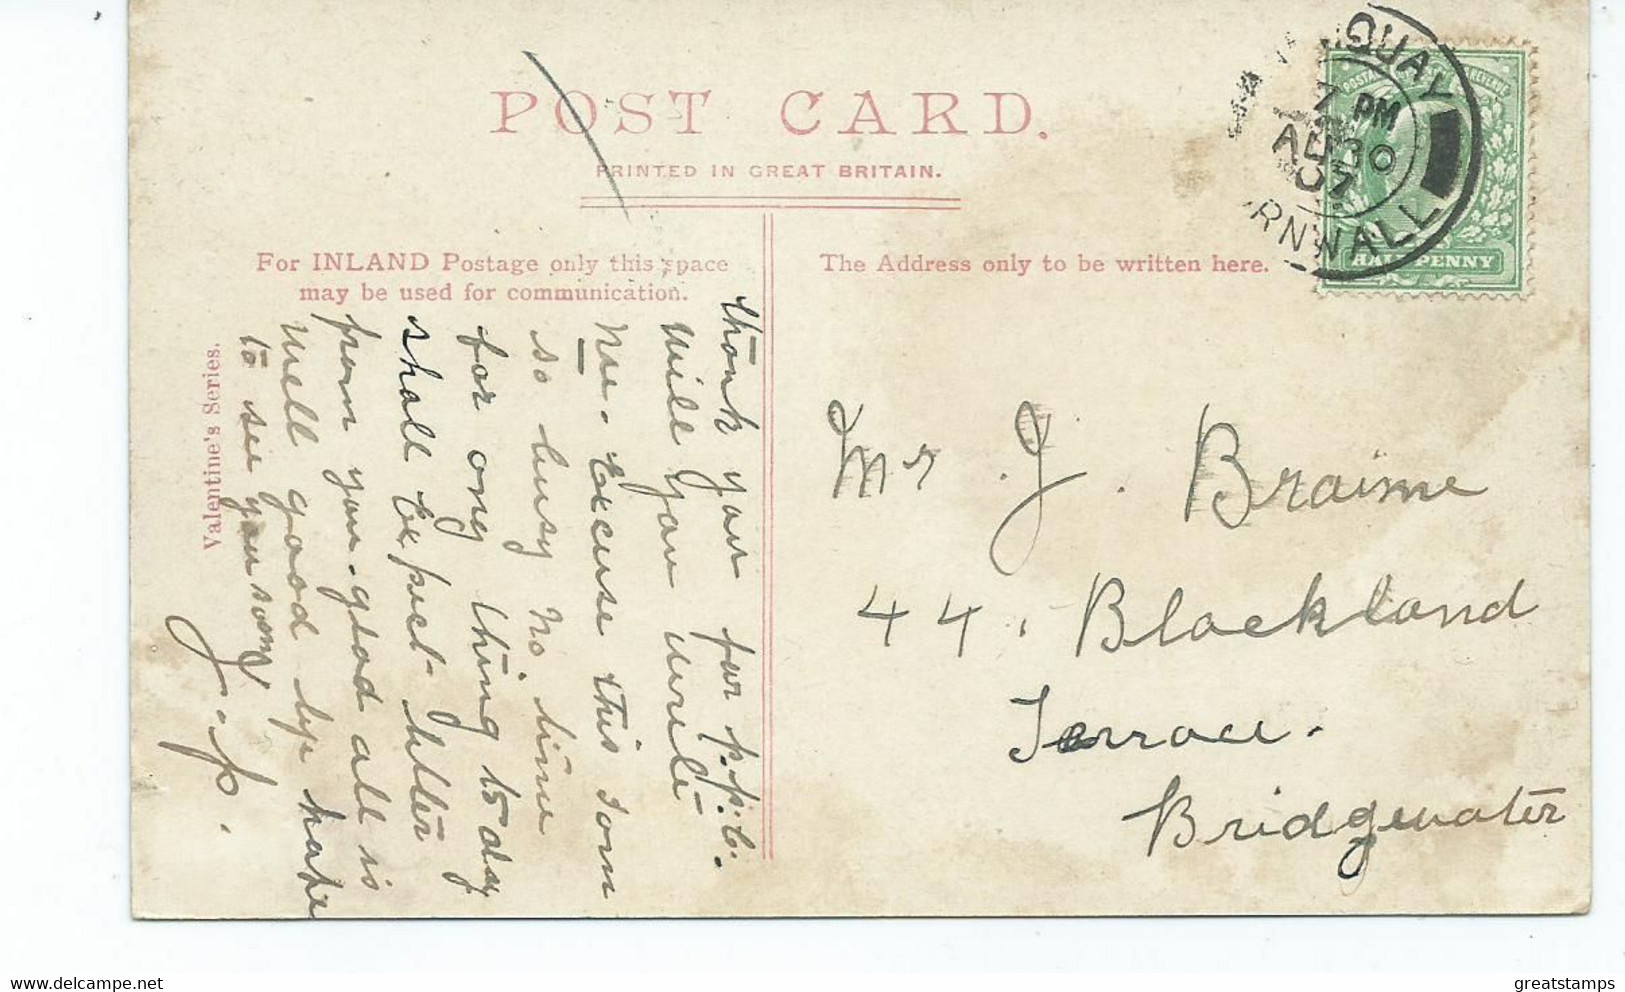 POST CARD.
PRINTED IN GREAT BRITAIN.
For INLAND Postage only this space
may be used for communication.
The Address only to be written here.
Valentine's Series.
QUAY
7 PM
AU 30
07
RNWALL
POSTAGE REVENUE
HALFPENNY
thank your for p.p.c.
will you write
me. Excuse this
so busy no time
for ony thing to day
shall Expect letter
from you. glad all is
well good by hope
to see you soon
J. P.
Mr. J. Braime
44. Blackland
Terrace.
Bridgewater
greatstamps